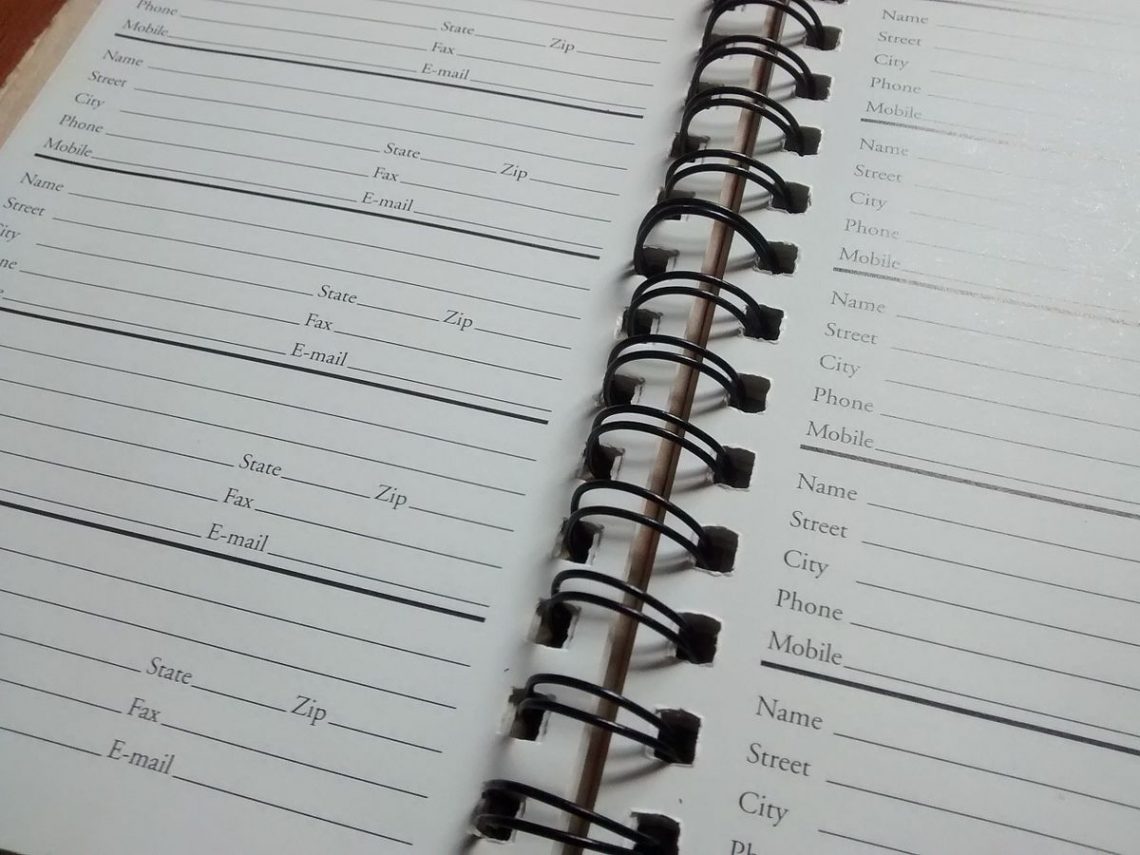 Phone
State Zip
Mobile Fax
E-mail
Name
Street
City
State Zip
Phone Fax
Mobile E-mail
Name
Street
City
State Zip
Fax
E-mail
State Zip
Fax
E-mail
State Zip
Fax
E-mail
Name
Street
City
Phone
Mobile
Name
Street
City
Phone
Mobile
Name
Street
City
Phone
Mobile
Name
Street
City
Phone
Mobile
Name
Street
City